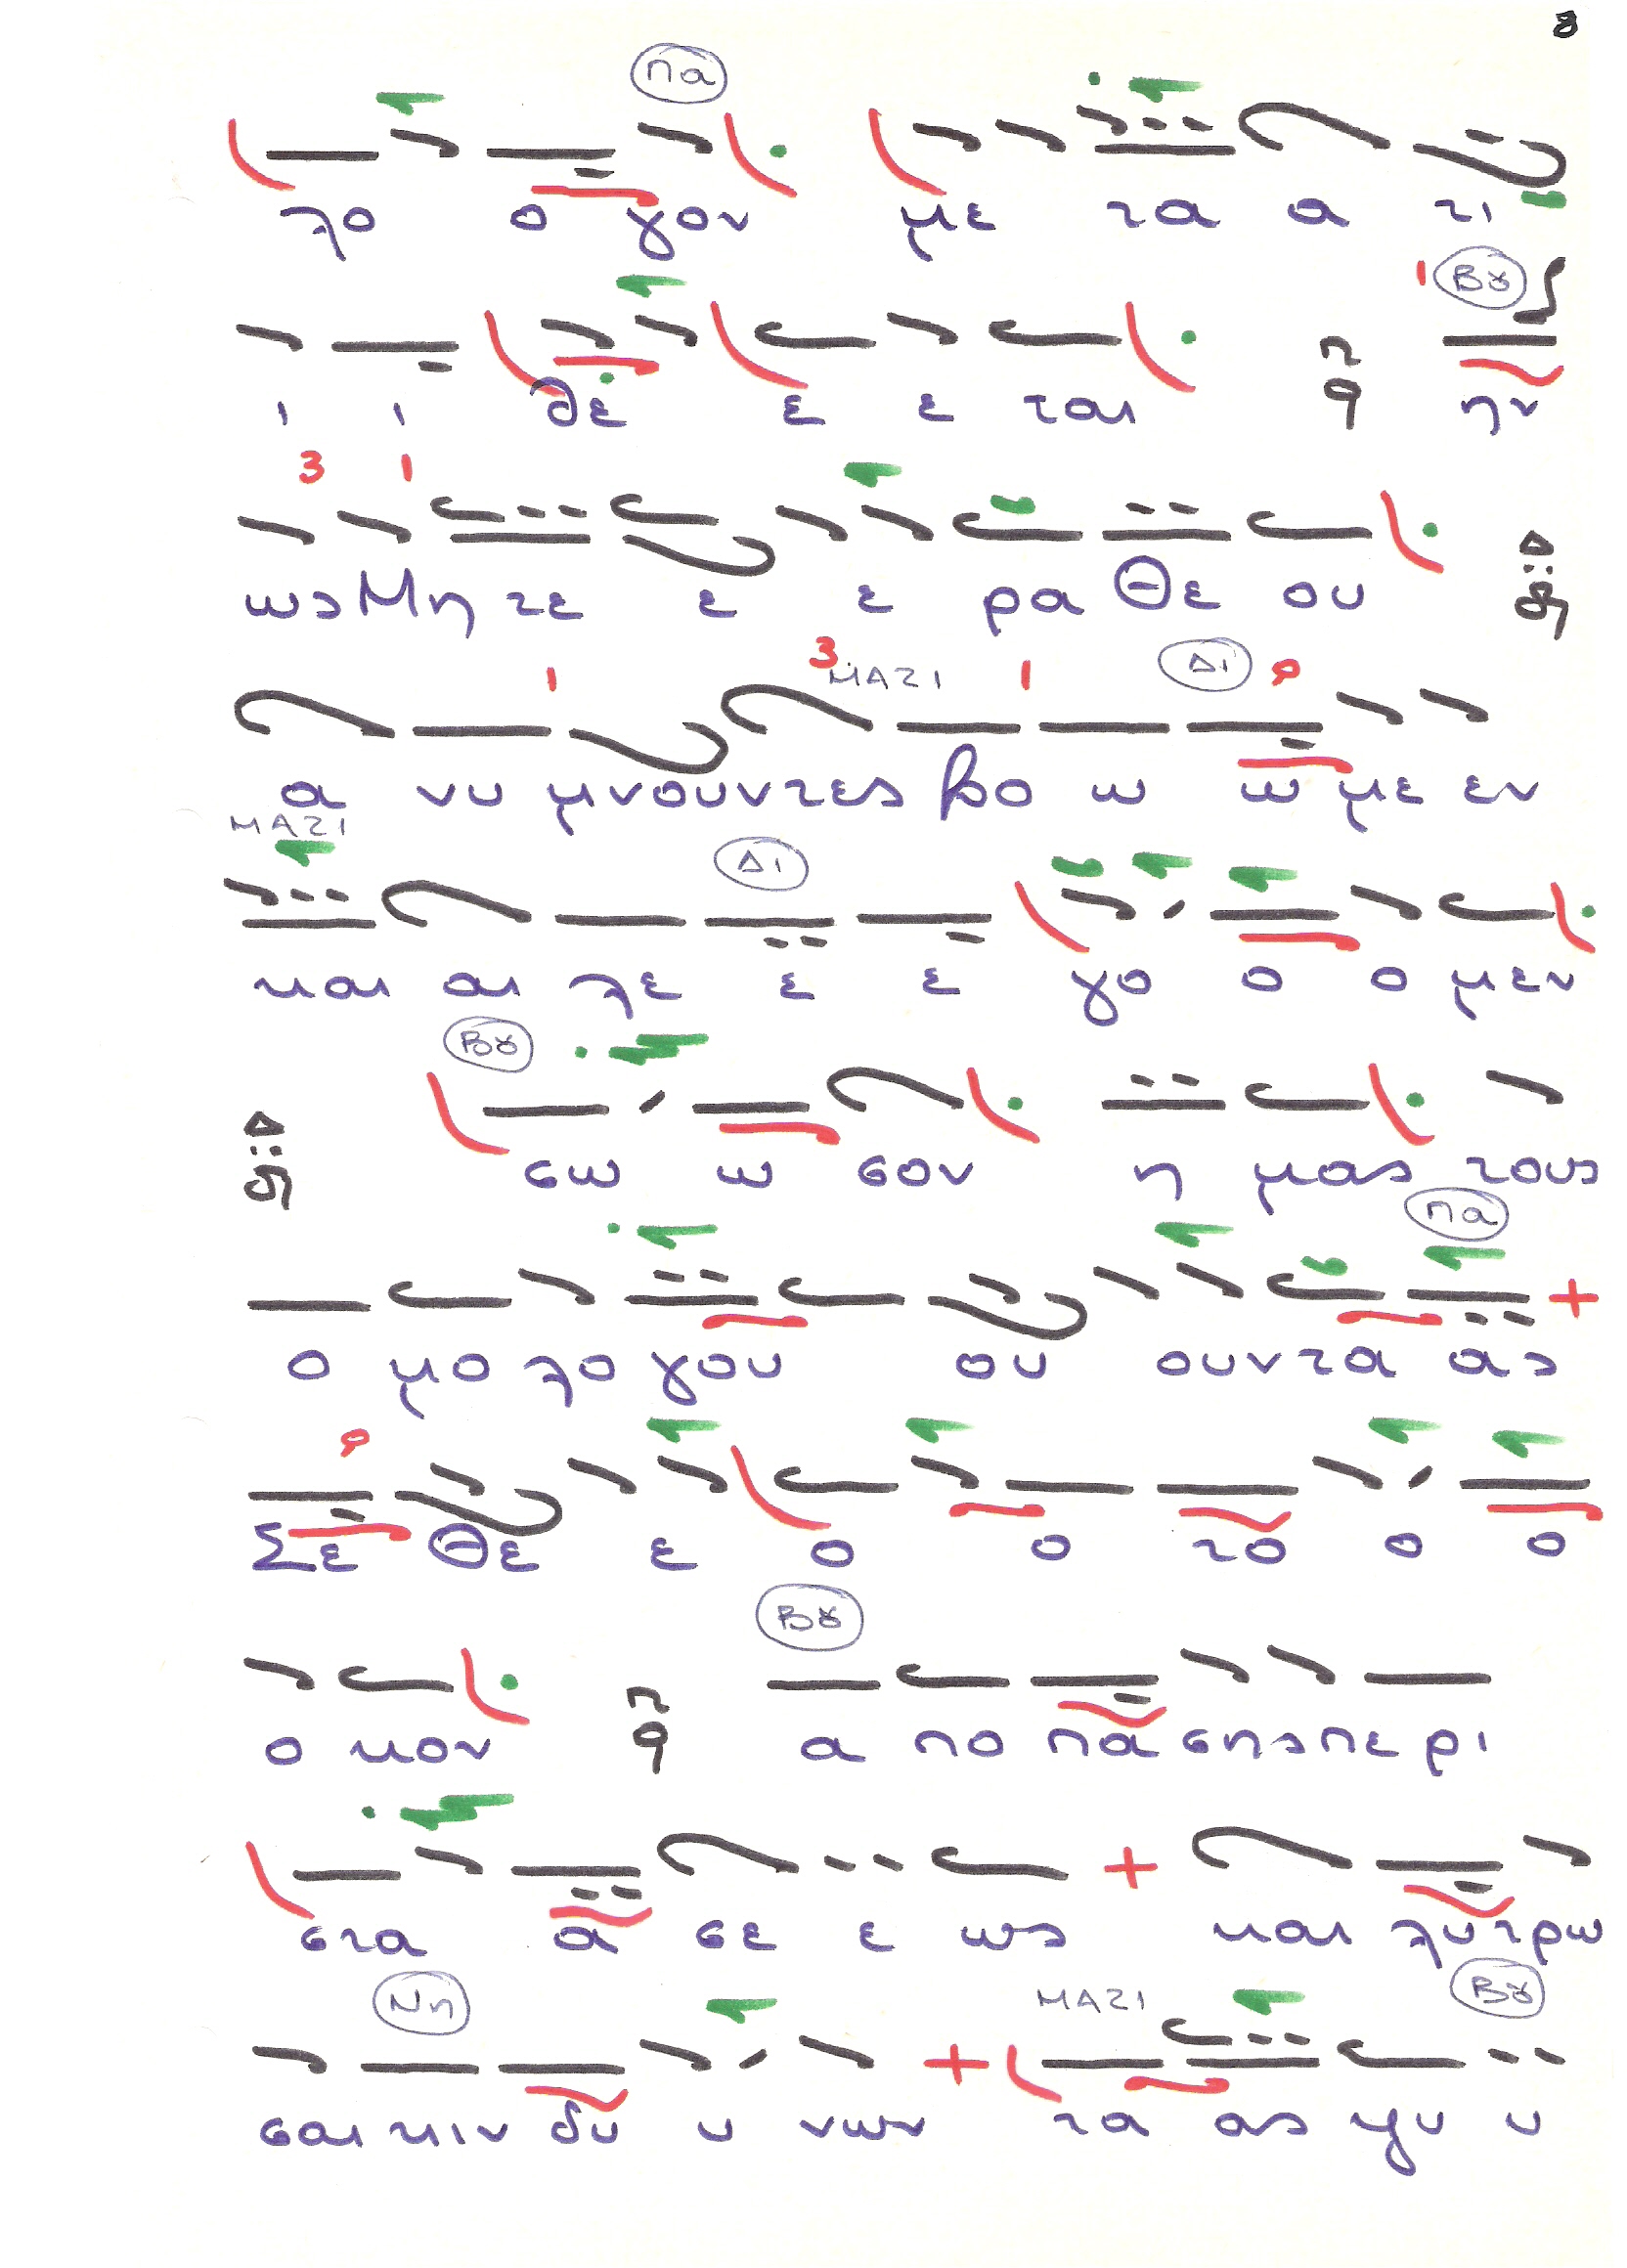 8
Πα
λο ο γον με τα α τι
Βȣ
ι ι θε ε ε ται ην
3 1
ως Μη τε ε ε ρα Θε ου
3 ΜΑΖΙ 1 Δι
α νυ μνουντες βο ω ω με εν
ΜΑΖΙ
Δι
και αι λε ε ε γο ο ο μεν
Βȣ
σω ω σον η μας τους
Πα
ο μο λο γου ου ουντα ας
Σε Θε ε ο ο το ο ο
Βȣ
ο κον α πο πα σης πε ρι
στα α σε ε ως και λυ τρω
Νη ΜΑΖΙ Βȣ
σαι κιν δυ υ νων τα ας ψυ υ